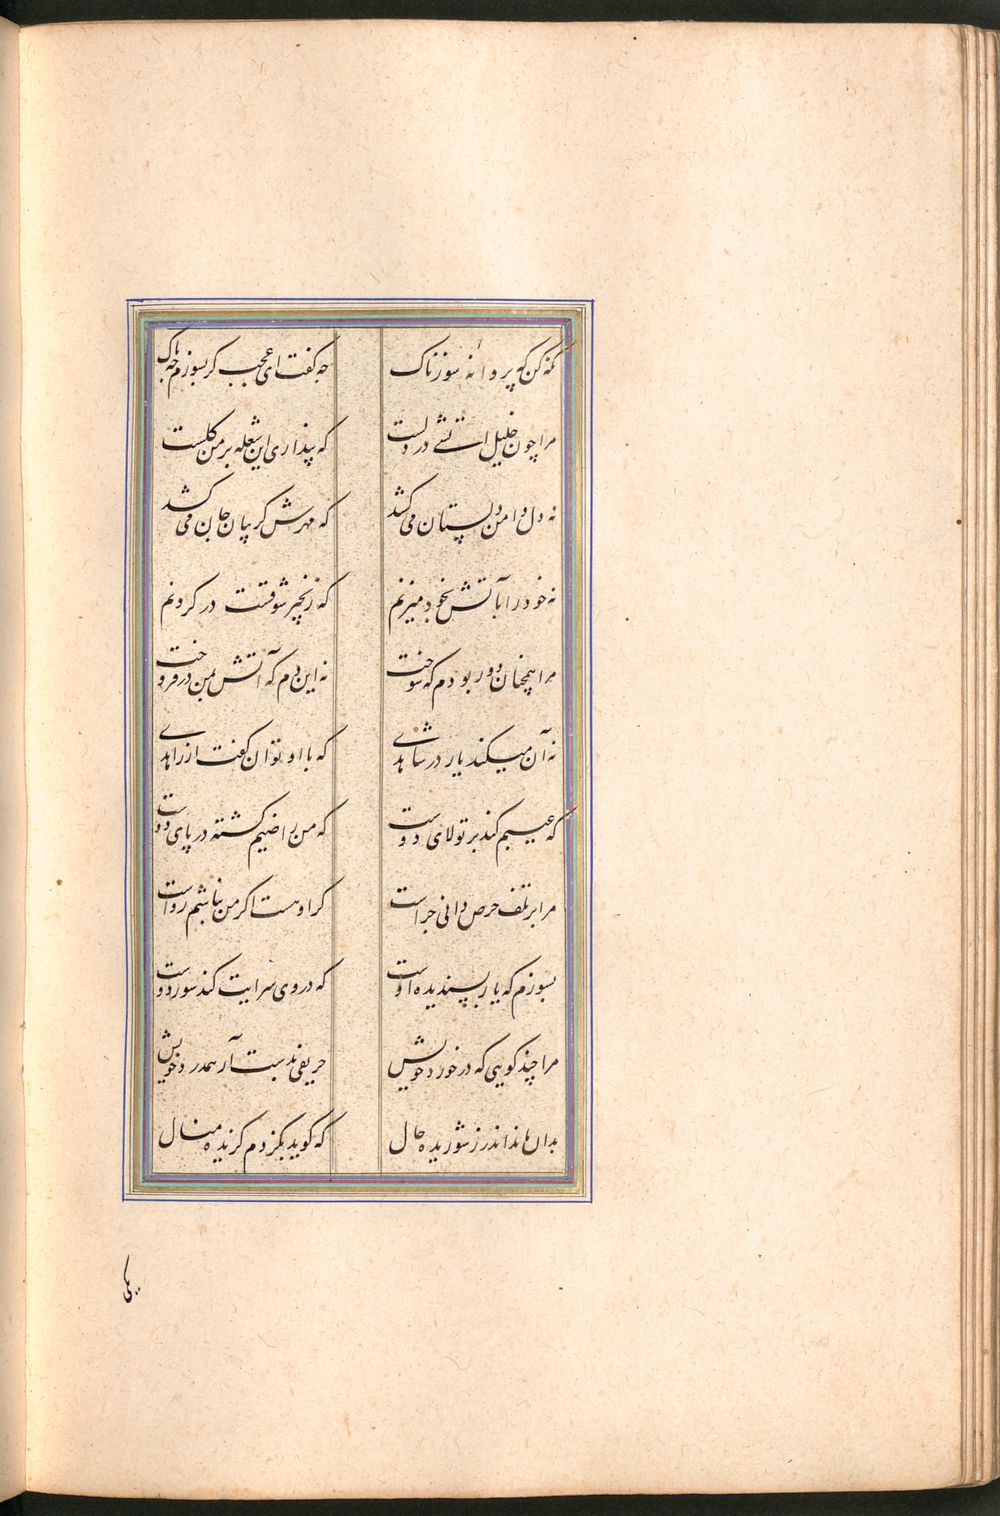 نکه کن که پروانهٔ سوزناک چه کفت ای عجب کر بسوزم چه باک
مرا چون خلیل اتشی در دلست که پنداری این شعله بر من کلست
نه دل دامن دلستان می کشد که مهرش کریبان جان می کشد
نه خود را بآتش بخود میزنم که زنجیر شوقست در کردنم
مرا همچنان دور بودم که سوخت نه این دم که آتش بمن در فروخت
نه آن میکند یار در شاهدی که با او توان کفت از زاهدی
که عیبم کند بر تولای دوست که من راضیم کشته در پای دوست
مرا بر تلف حرص دانی چراست کر او هست اکر من نباشم رواست
بسوزم که یار پسندیده اوست که در وی سرایت کند سوز دوست
مرا چند کویی که در خورد خویش حریفی بدست آر همدرد خویش
بدان ماند اندرز شوریده حال که کوید بکژدم کزیده منال